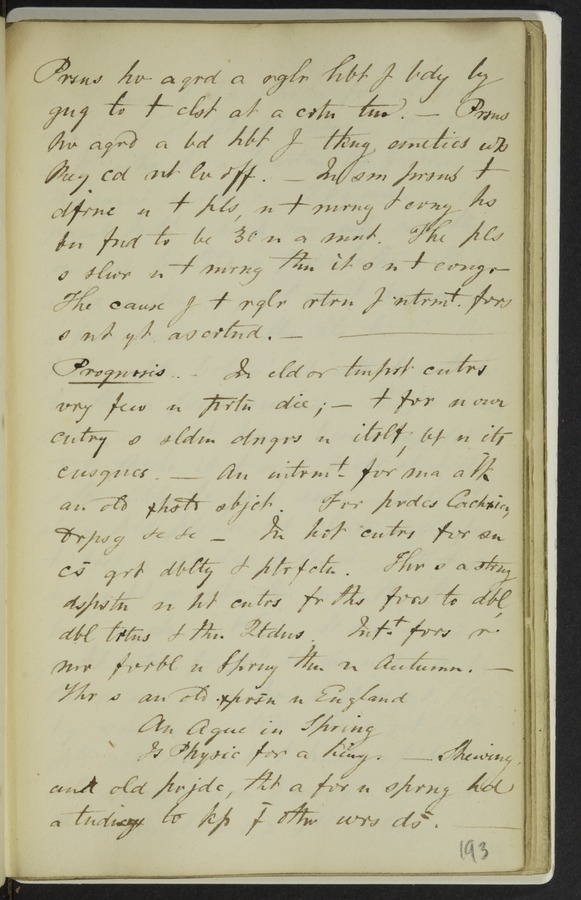 Prsns hv aqrd a rglr hbt f bdy by
gng to t clst at a crtn tm. — Prsns
hv aqrd a bd hbt f tkng emetics wh
they cd nt lv off. — In sm prsns t
dfrnc n t pls, n t mrng & evng hs
bn fnd to be 30 n a mnt. The pls
s slwr n t mrng thn it s n t evngs
The cause f t rglr rtrn f ntrmt. fvrs
s nt yt ascrtnd. —
Prognosis. — In cld or tmprt cntrs
vry few n frtn die; — t fvr n our
cntry s sldm dngrs n itslf, bt n its
cnsqncs. — An intrmt fvr ma atk
an old sbjct. Fvr prdcs Cachxia,
Drpsy &c &c — In hot cntrs fvr sn
cs grt dblty & ptrfctn. Thr s a strng
dspstn n ht cntrs fr ths fvrs to dbl,
dbl trtns & thn Rtdns. Intt fvrs r
mr fvrbl n Spring thn n Autumn. —
Thr s an old xprsn n England
An Ague in Spring
Is Physic for a King. — Shewing
an old prjdc, tht a fvr n sprng hd
a tndncy to kp f othr wrs ds. —
193